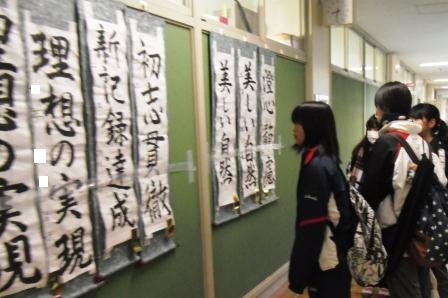 理想の実現
理想の実現
新記録達成
初志貫徹
美しい自然
美しい自然